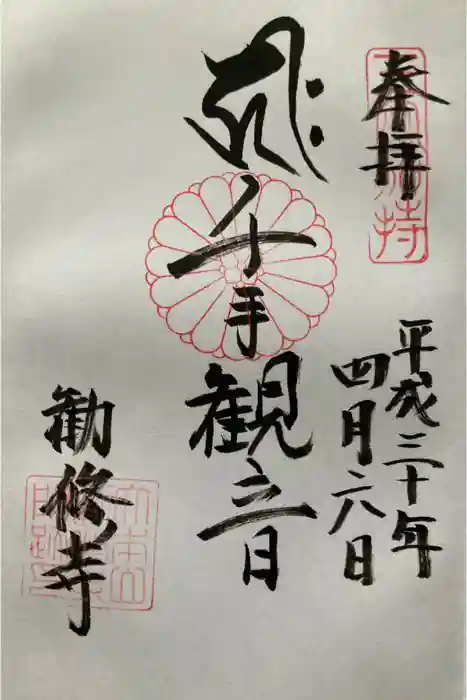 奉拝
平成三十年
四月六日
千手観音
勧修寺